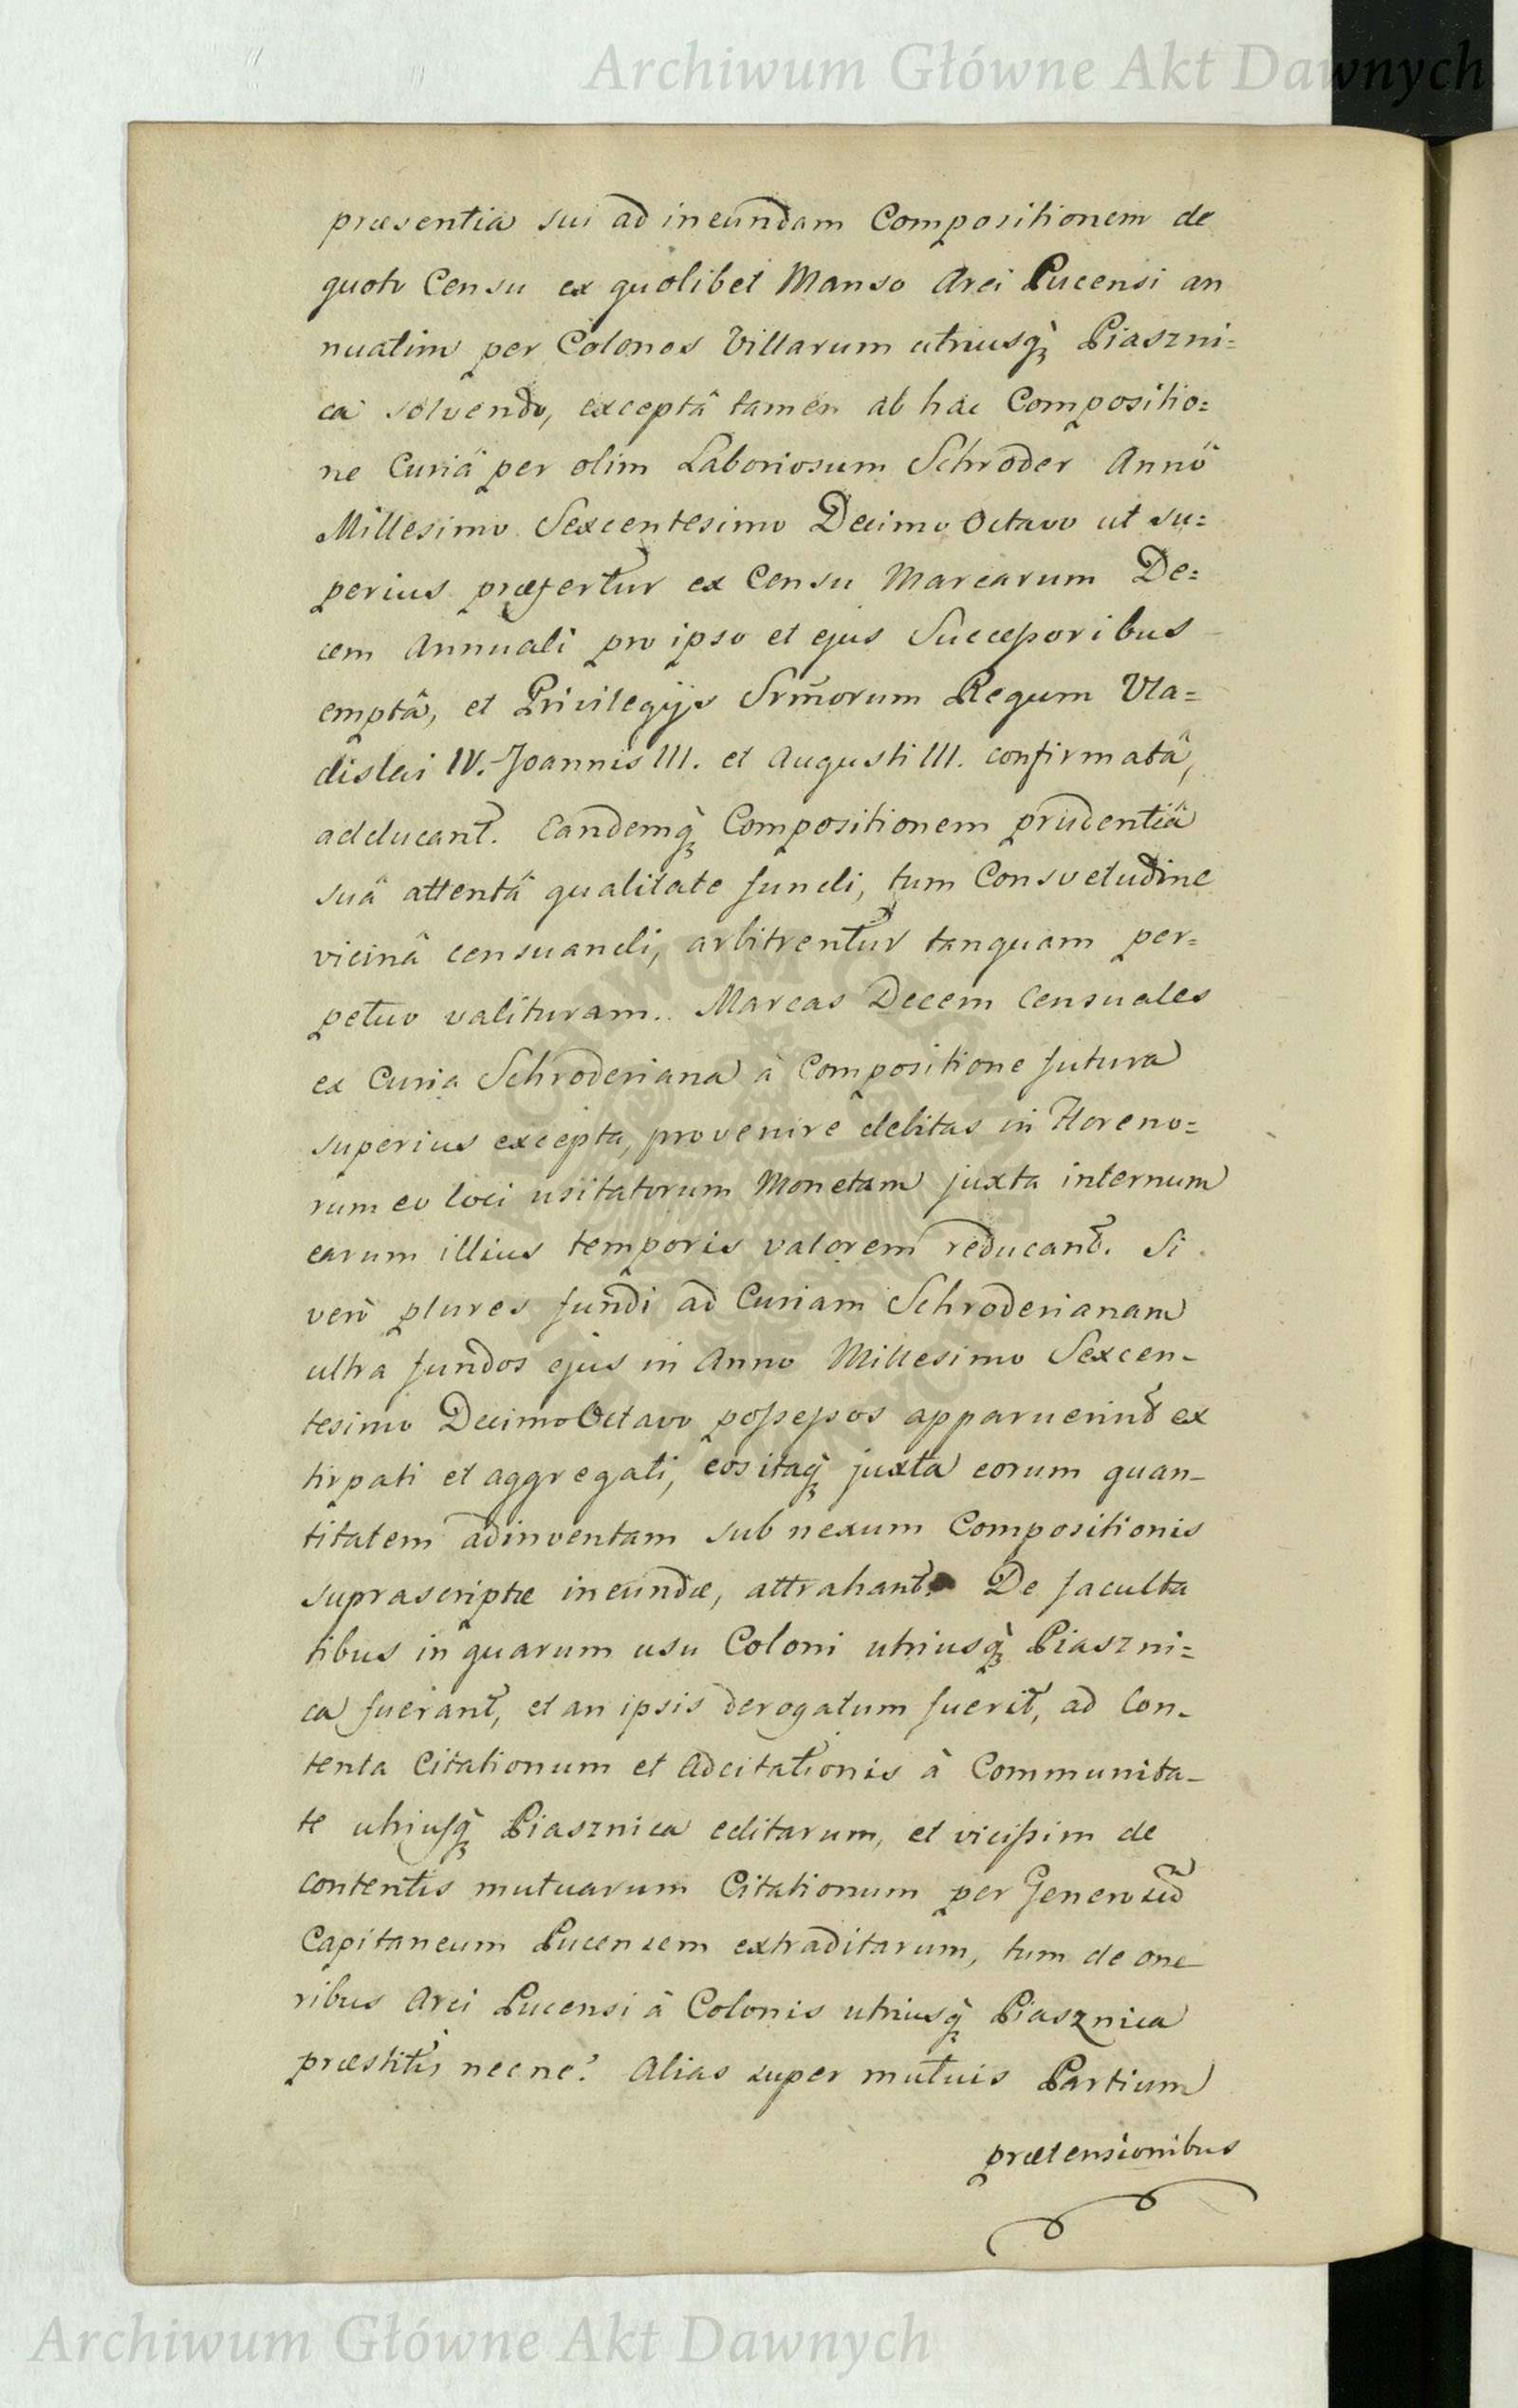 Archiwum Główne Akt Dawnych
præsentia sui ad ineundam Compositionem de
quoto Censu ex quolibet Manso Arci Pucensi an
nuatim per Colonos Villarum utriusq̀ Piaszni=
ca solvendo, exceptâ tamen ab hac Compositio=
ne Curiâ per olim Laboriosum Schroder Annô
Millesimo Sexcentesimo Decimo Octavo ut su=
perius præfertur ex Censu Marcarum De=
cem Annuali pro ipso et ejus Successoribus
emptâ, et Privilegijs Srm̃orum Regum Vla=
dislai IV. Joannis III. et Augusti III. confirmatâ,
adducant. Eandemq̀ Compositionem prudentiâ
suâ attentâ qualitate fundi, tum Consvetudine
vicinâ censuandi, arbitrentur tanquam per=
petuo valituram. Marcas Decem Censuales
ex Curia Schroderiana à Compositione futura
superius excepta, provenire debitas in Floreno=
rum eo loci usitatorum Monetam juxta internum
earum illius temporis valorem reducant. Si
verò plures fundi ad Curiam Schroderianam
ultra fundos ejus in Anno Millesimo Sexcen-
tesimo Decimo Octavo possessos apparuerint ex
tirpati et aggregati, eos itaq̀ juxta eorum quan-
titatem adinventam sub nexum Compositionis
suprascriptæ ineundæ, attrahant. De faculta
tibus in quarum usu Coloni utriusq̀ Piaszni=
ca fuerant, et an ipsis derogatum fuerit, ad Con-
tenta Citationum et Adcitationis à Communita-
te utriusq̀ Piasznica editarum, et vicissim de
contentis mutuarum Citationum per Generosũ
Capitaneum Pucensem extraditarum, tum de one
ribus Arci Pucensi à Colonis utriusq̀ Piasznica
præstitis necne? Alias super mutuis Partium
prætensionibus
Archiwum Główne Akt Dawnych